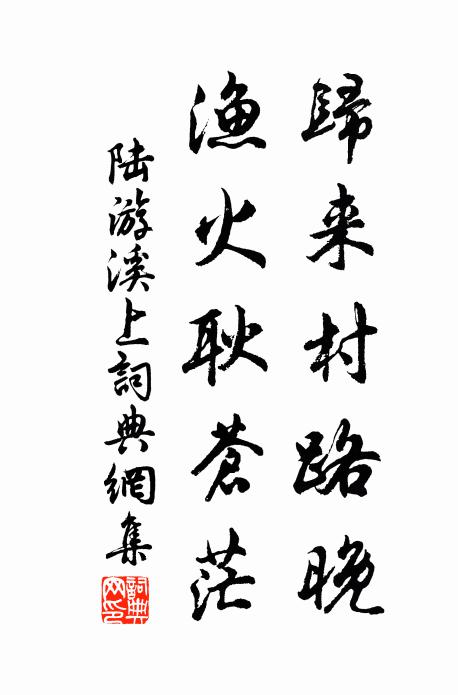 歸来村路晚
漁火耿蒼茫
陸游溪上詞典網集
詞典網印